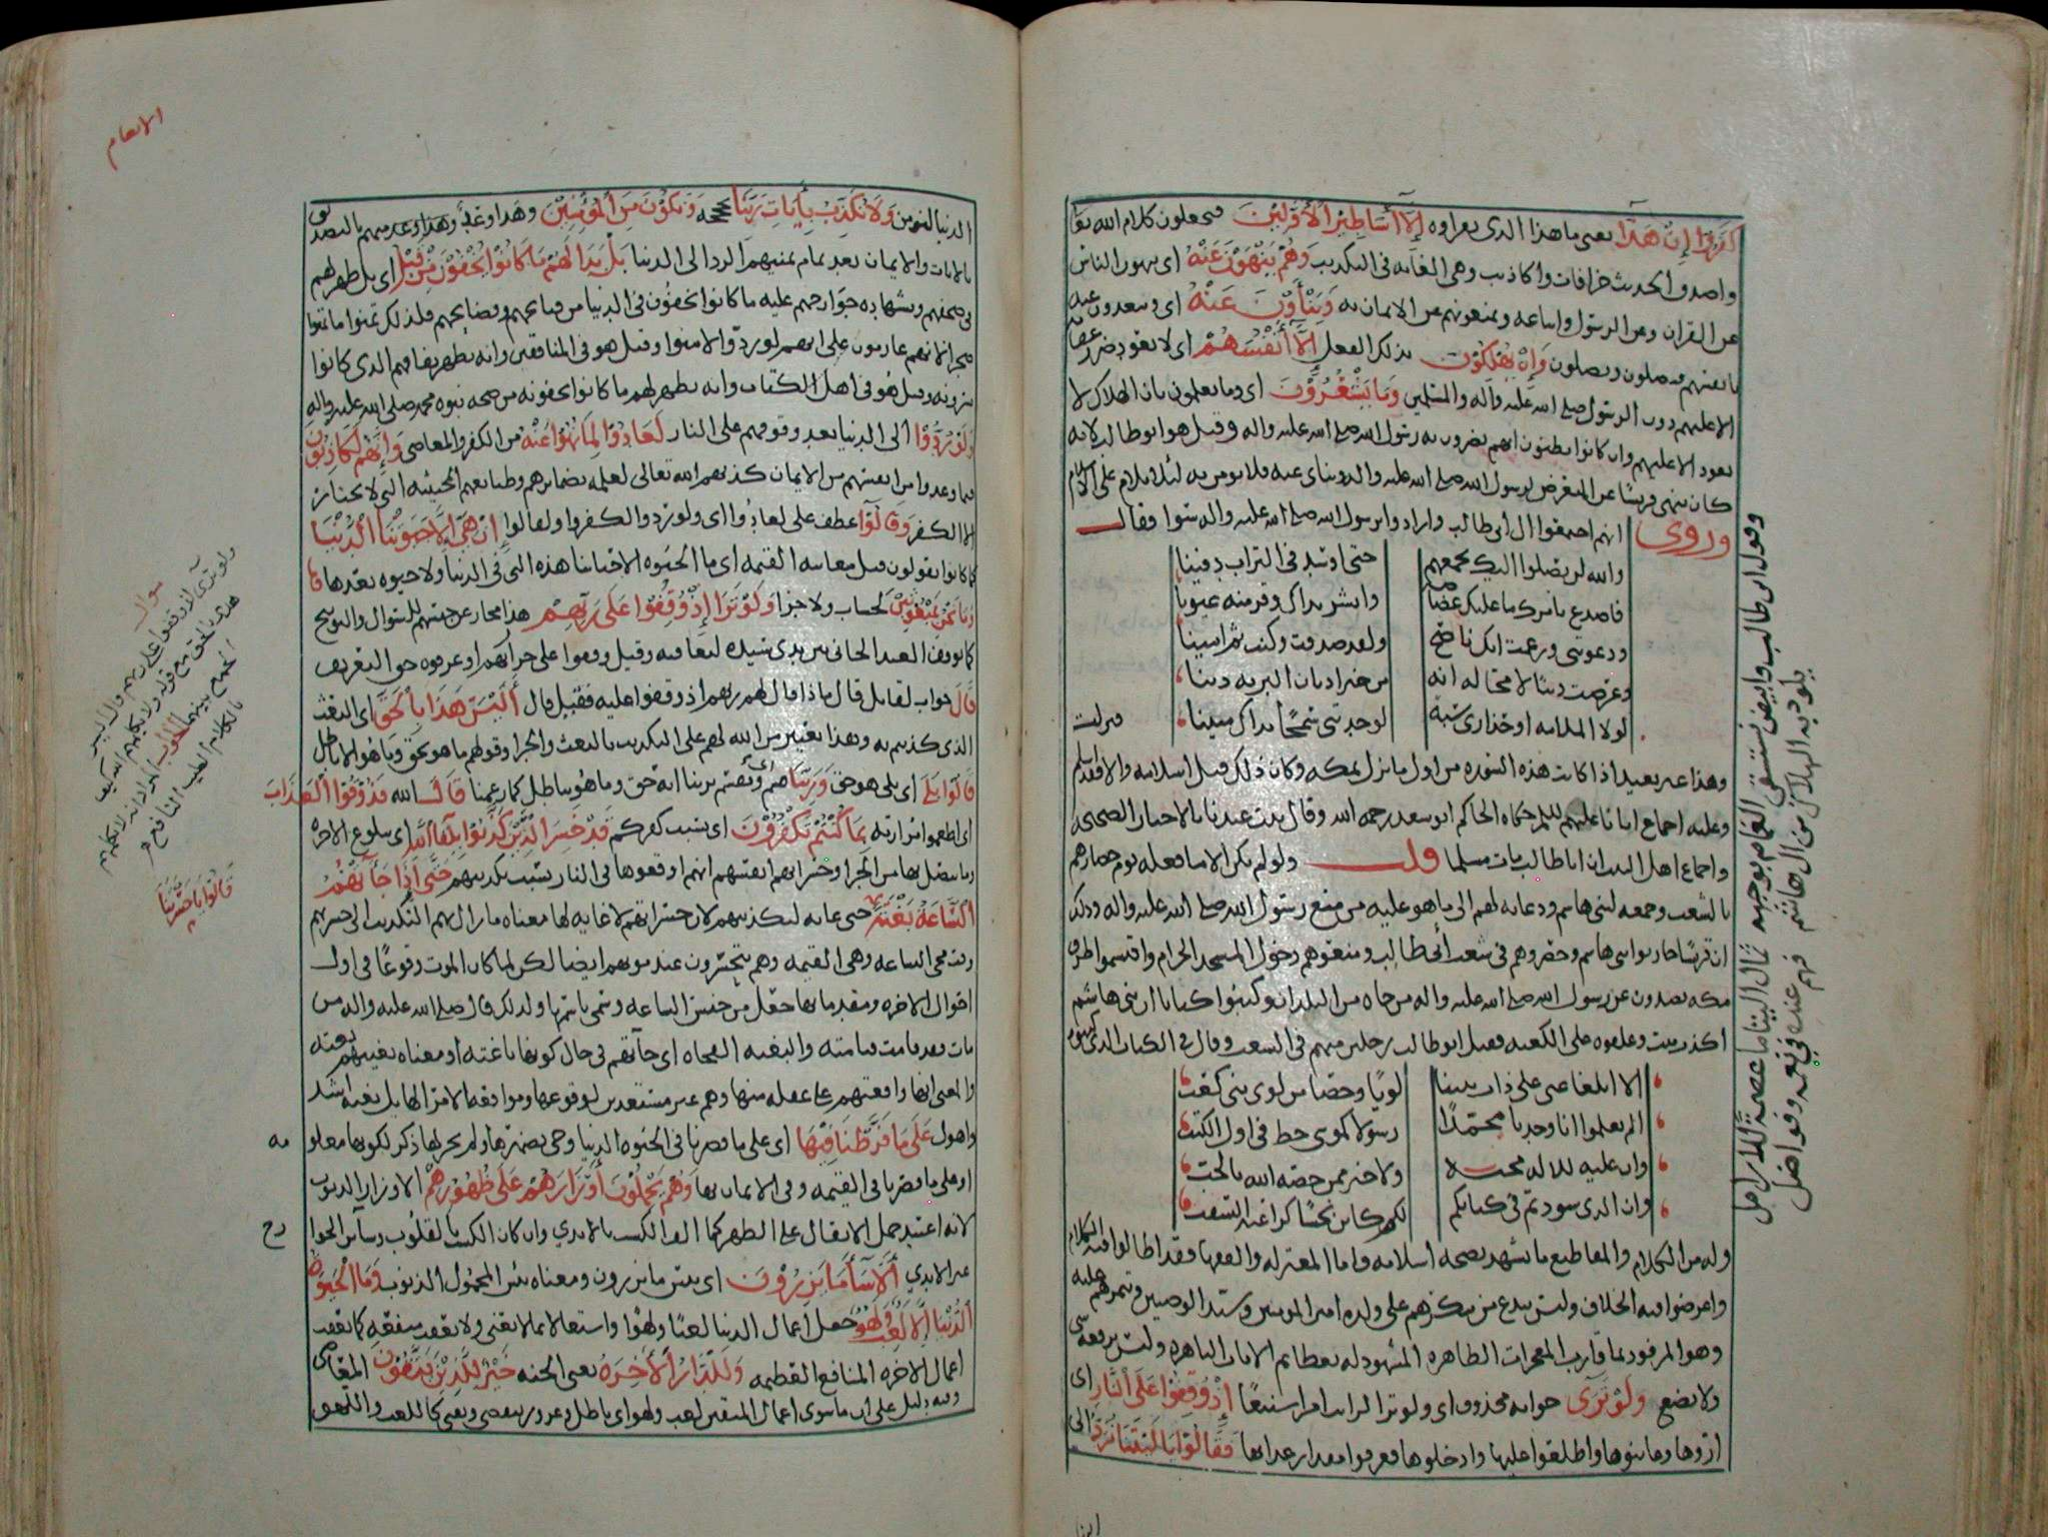 كفروا إن هذا يعني ما هذا الذي يقراوه إلا أساطير الأولين فيجعلون كلام الله تعا
واصدق الحديث خرافات واكاذيب وهي الغايه في التكذيب وهم ينهون عنه اي ينهون الناس
عن القران وعن الرسول واتباعه ويمنعونهم عن الايمان به وينأون عنه اي ويبعدون عنه
بانفسهم فيضلون ويضلون وإن يهلكون بذلك الفعل إلا أنفسهم اي لا يعود ضرر
الا عليهم دون الرسول صلى الله عليه وآله والمسلمين وما يشعرون اي وما يعلمون بان الهلاك لا
يعود الا عليهم وان كانوا يظنون انهم يضرون به رسول الله صلى الله عليه واله وقيل هو ابو طالب لانه
كان ينهى قريشا عن التعرض لرسول الله صلى الله عليه واله وينأى عنه فلا يومن به
وروي انهم اجتمعوا الى ابي طالب وارادوا برسول الله صلى الله عليه واله سوا فقال
والله لن يصلوا اليك بجمعهم حتى اوسد في التراب دفينا
فاصدع بامرك ما عليك غضاضة وابشر بذاك وقر منه عيونا
ودعوتني وزعمت انك ناصح ولقد صدقت وكنت ثم امينا
وعرضت دينا لا محاله انه من خير اديان البريه دينا
لولا الملامه او حذاري سبة لوجدتني سمحا بذاك مبينا فنزلت
وهذا غير بعيد اذا كانت هذه السوره من اول ما نزل بمكه وكان ذلك قبل اسلامه والا
وعليه اجماع ابائنا عليهم السلام حكاه الحاكم ابو سعد رحمه الله وقال ثبت عندنا بالاخبار الصحيحه
واجماع اهل البيت ان ابا طالب مات مسلما قلت ولو لم يكن الا ما فعله يوم حصارهم
بالشعب وجمعه لبني هاشم ودعائه لهم الى ما هو عليه من منع رسول الله صلى الله عليه واله وذلك
ان قريشا حاربوا بني هاشم وحصروهم في شعب أبي طالب ومنعوهم دخول المسجد الحرام واقتسموا طرق
مكه يصدون عن رسول الله صلى الله عليه واله من جاه من البلدان وكتبوا كتابا ان بني هاشم
وعلقوه على الكعبه فقتل ابو طالب رجلين منهم في الشعب وقال في الكتاب الذي كتبوه
الا ابلغا عني على ذات بيننا لويا وخصا من لوي بني كعب
الم تعلموا انا وجدنا محمدا رسولا كموسى خط في اول الكتب
وان عليه للاله محبة ولا خير ممن خصه الله بالحب
وان الذي سودتم في كتابكم لكم كائن نحسا كراغية السقب
وله من الكلام والمقاطيع ما يشهد بصحه اسلامه واما المعتزله والفقها فقد اطالوا فيه الكلام
واعرضوا فيه الخلاف وليس ببدع من مكرهم على ولده امير المومنين وسيد الوصيين
وهو المرفود بما قارب المعجزات الظاهره المشهود له بعظائم الايات الباهره وليس
ولا يضع ولو ترى جوابه محذوف اي ولو ترا لرايت امرا شنيعا إذ وقفوا على النار اي
اروها وعاينوها واطلعوا عليها وادخلوها فعرفوا مقدار عذابها فقالوا يا ليتنا نرد الى
وقول ابي طالب وابيض يستسقى الغمام بوجهه ثمال اليتامى عصمة للارامل
يلوذ به الهلاك من ال هاشم فهم عنده في نعمه وفواضل
الانعام
الدنيا لنومن ولا نكذب بآيات ربنا ونكون من المؤمنين وهذا وعد منهم بالتصديق
بالايات والايمان بعد تمام تمنيهم الرد الى الدنيا بل بدا لهم ما كانوا يخفون من قبل اي بل ظهر لهم
في صحفهم وبشهاده جوارحهم عليه ما كانوا يخفون في الدنيا من قبائحهم وفضائحهم فلذلك تمنوا ما تمنوا
ضجرا لا انهم عازمون على انهم لو ردوا لامنوا وقيل هو في المنافقين وانه يظهر نفاقهم الذي كانوا
يسرونه وقيل هو في اهل الكتاب وانه يظهر لهم ما كانوا يخفونه من صحه نبوه محمد صلى الله عليه واله
ولو ردوا الى الدنيا بعد وقوفهم على النار لعادوا لما نهوا عنه من الكفر والمعاصي وإنهم لكاذبون
فيما وعدوا من انفسهم من الايمان كذبهم الله تعالى لعلمه بضمائرهم وطبائعهم الخبيثه التي لا تختار
الا الكفر وقالوا عطف على لعادوا اي ولو ردوا لكفروا ولقالوا إن هي إلا حيوتنا الدنيا
كما كانوا يقولون قبل معاينه القيمه اي ما الحيوه الا حياتنا هذه التي في الدنيا ولا حيوه بعدها
وما نحن بمبعوثين لحساب ولا جزا ولو ترا إذ وقفوا على ربهم هذا مجاز عن حبسهم للسوال والتوبيخ
كما يوقف العبد الجاني بين يدي سيده ليعاقبه وقيل وقفوا على جزا ربهم او عرفوه حق التعريف
قال جواب لقائل قال ماذا قال لهم ربهم اذ وقفوا عليه فقيل قال أليس هذا بالحق اي البعث
الذي كذبتم به وهذا تعيير من الله لهم على التكذيب بالبعث والجزا وقولهم ما هو بحق وما هو الا باطل
قالوا بلى اي بلى هو حق وربنا اي نقسم بربنا انه حق وما هو بباطل كما زعمنا قال الله فذوقوا العذاب
اي اطعموا مرارته بما كنتم تكفرون اي بسبب كفركم قد خسر الذين كذبوا بلقاء الله اي ببلوغ الاخره
وما يتصل بها من الجزا وخسرانهم انفسهم انهم اوقعوها في النار بسبب تكذيبهم حتى إذا جآءتهم
الساعة بغتة حتى غايه لتكذيبهم لان خسرانهم لا غايه لها معناه ما زال بهم التكذيب الى حسرتهم
وقت مجي الساعه وهي القيمه وهم يتحسرون عند موتهم ايضا لكن لما كان الموت وقوعا في اول
احوال الاخره ومقدماتها جعل من جنس الساعه وسمي باسمها ولذلك قال صلى الله عليه واله من
مات فقد قامت قيامته والبغته الفجاه اي جآءتهم في حال كونها باغته او معناه بغتتهم بغته
والمعنى انها وافتهم على غفله منها وهم غير مستعدين لوقوعها وموافقه الامر الهايل بغته اشد
واهول على ما فرطنا فيها اي على ما قصرنا في الحيوه الدنيا وجي بضميرها ولم يجر لها ذكر لكونها معلو
مه
او على ما قصرنا في القيمه وفي الايمان بها وهم يحملون أوزارهم على ظهورهم الاوزار الذنوب
لانه اعتيد حمل الاثقال على الظهر كما الف الكسب بالايدي وان كان الكسب بالقلوب وسآئر الجوا
رح
غير الايدي ألا سآء ما يزرون اي بئس ما يزرون ومعناه بئس المحمول الذنوب وما الحيوة
الدنيا إلا لعب ولهو جعل اعمال الدنيا لعبا ولهوا واشتغالا بما لا يغني ولا يعقب منفعه كما تعقب
اعمال الاخره المنافع العظيمه وللدار الأخرة يعني الجنه خير للذين يتقون المعاصي
وفيه دليل على ان ما سوى اعمال المتقين لعب ولهو اي باطل وغرور ينقضي ويفنى كاللعب واللهو
سوال
ولو ترى اذ وقفوا على ربهم وقال اليس
هذا بالحق مع قوله ولا يكلمهم الله كيف
الجمع بينهما الجواب المراد انه لا يكلمهم
بالكلام الطيب النافع
قالوا يا حسرتنا